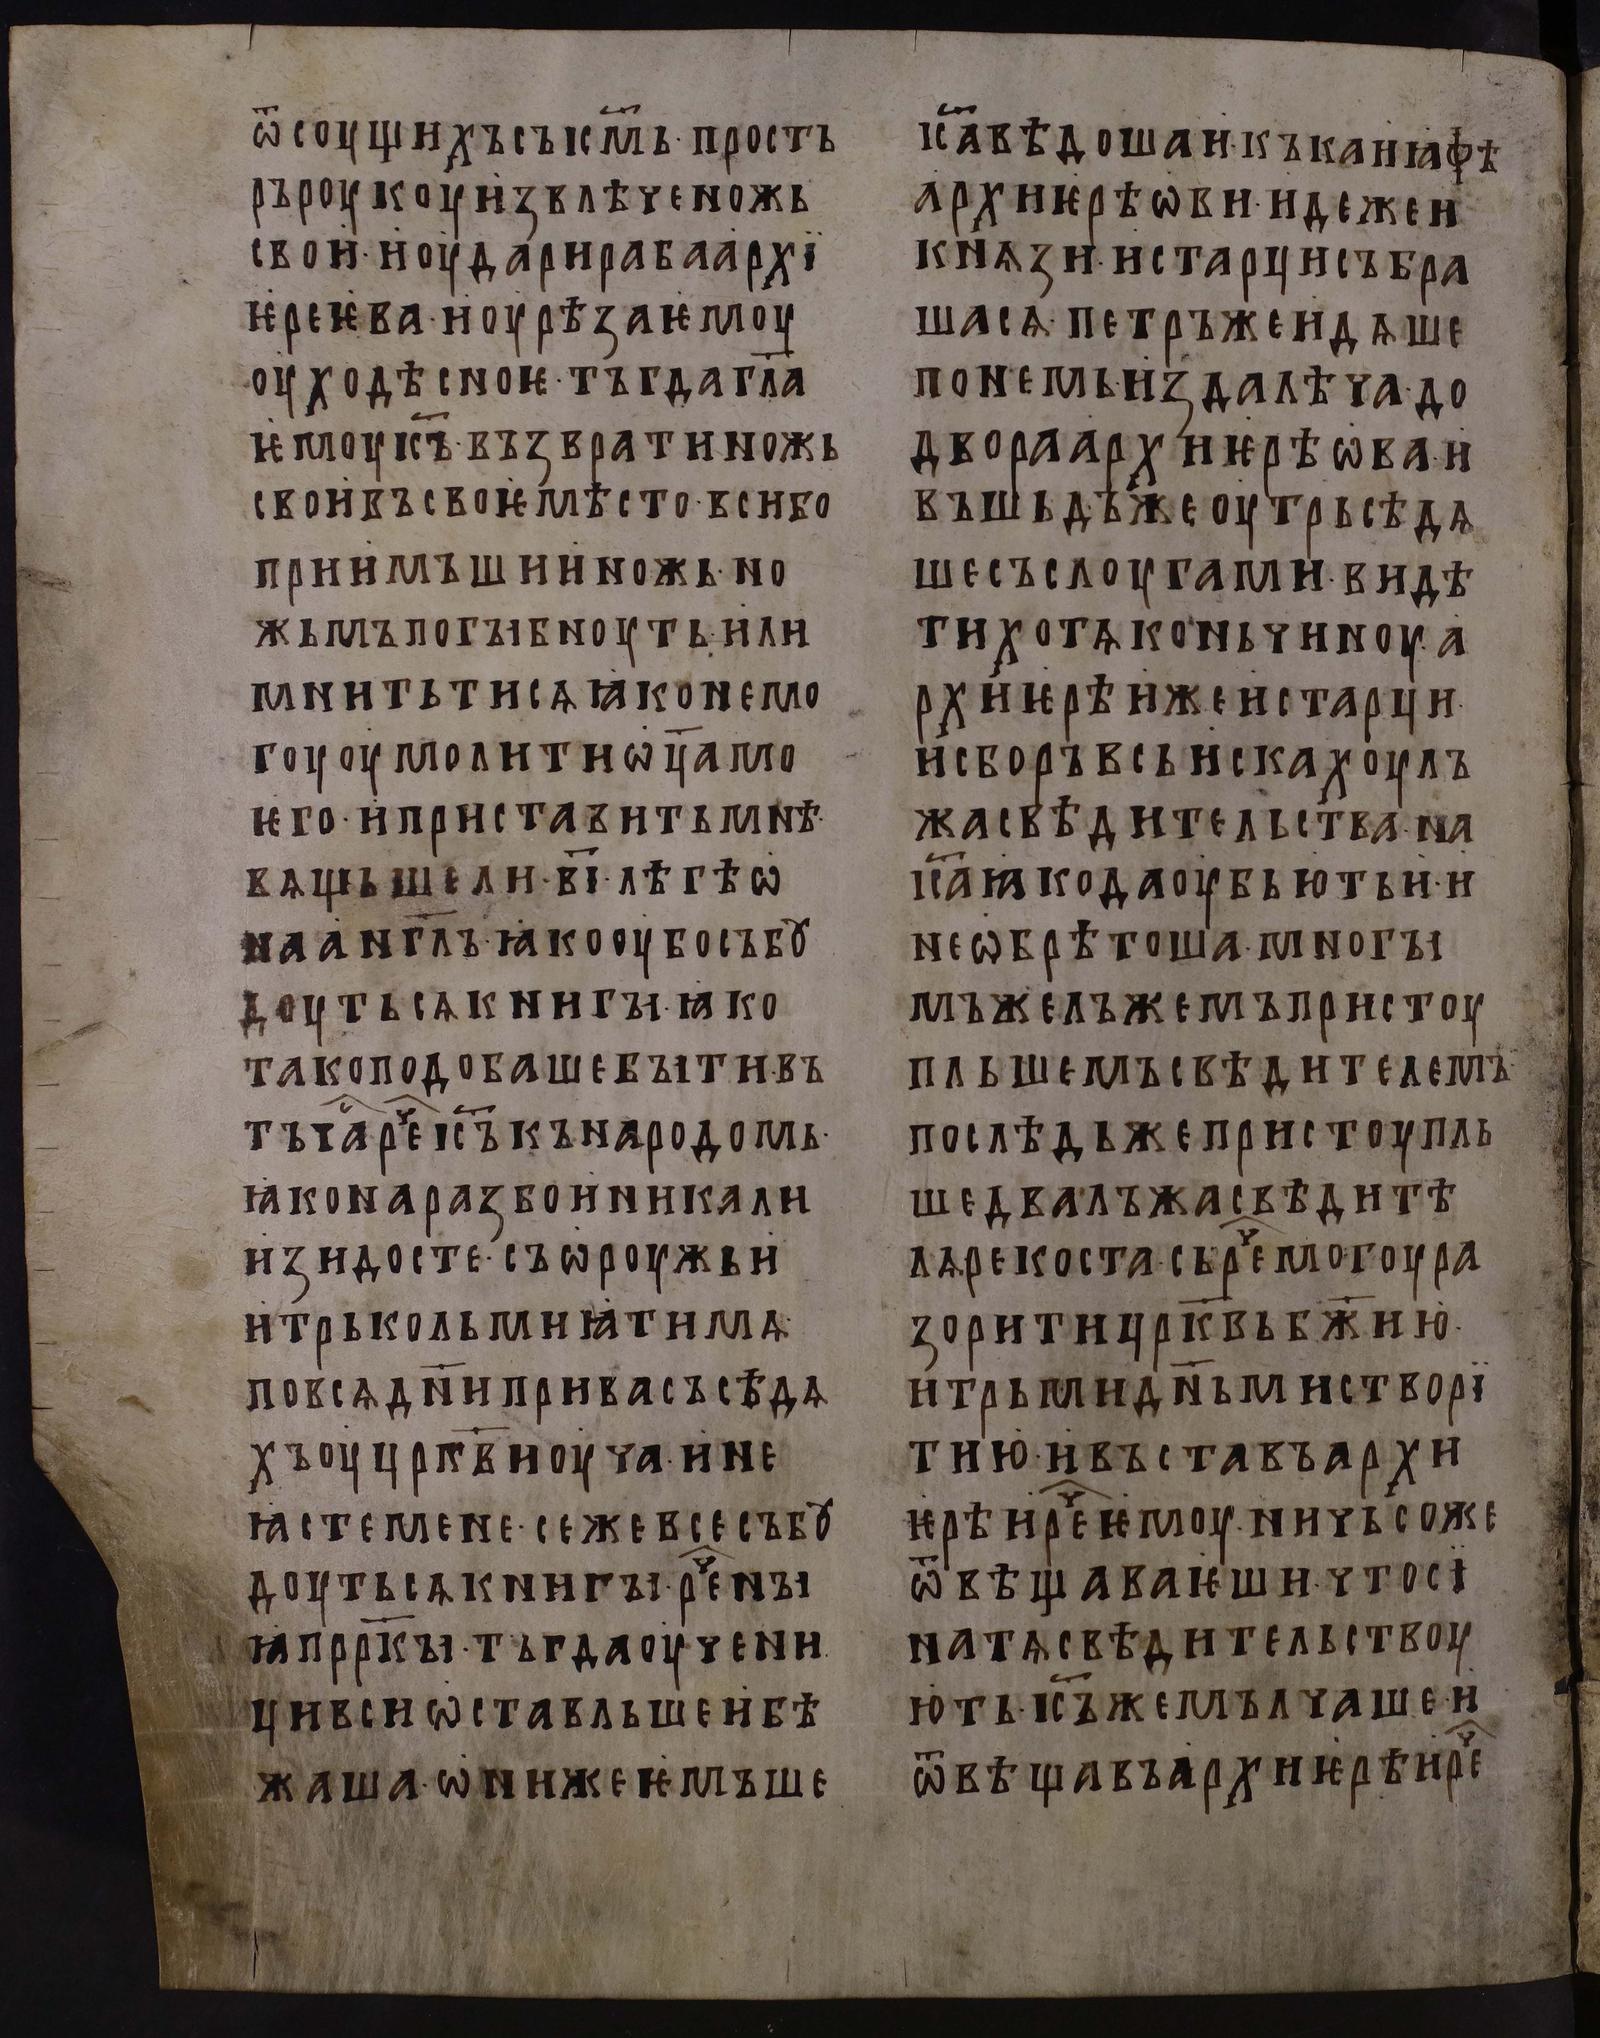 ѿсоущихъсъісм҃ь· простъ
ръроукоуизвлѣченожь
свои· иоударирабаархї
ѥреѥва· иоурѣзаѥмоу
оуходѣсноѥ· тъгдагл҃а
ѥмоуіс҃ъ· възвратиножь
своивъсвоѥмѣсто· всибо
приимъшииножь· но
жьмъпогꙑбноуть· или
мнитьтисѧꙗконемо
гоуоумолитиѡц҃амо
ѥго· иприставитьмнѣ·
вѧщьшели· в҃і· лѣгѣѡ
наанг҃лъ· ꙗкооубосъбꙋ
доутьсѧкнигꙑ· ꙗко
такоподобашебꙑти· въ
тъчⷭ҇арⷱ҇еіс҃ъкънародомь·
ꙗконаразбоиникали
изидосте· съѡроужьи
итрькольмиꙗтимѧ·
повсѧдн҃ипривасъсѣдѧ
хъоуцрк҃виоуча· ине
ꙗстемене· сежевсесъбꙋ
доутьсѧкнигꙑ· рⷱ҇енꙑ
ꙗпррк҃ꙑ· тъгдаоучени
цивсиѡставльшеибѣ
жаша· ѡнижеѥмъше
іс҃аведошаи· къканꙗфѣ
архиѥрѣѡви· идежеи
кнѧзи· истарцисъбра
шасѧ· петръжеидѧше
понемьиздалѣча· до
двораархиѥрѣѡва· и
въшьдъжеоутрьсѣдѧ
шесъслоугами· видѣ
тихотѧконьчиноу· а
рхиѥрѣижеистарци·
исборъвсьискахоулъ
жасвѣдительства· на
іс҃аꙗкодаоубьютьи· и
неѡбрѣтоша· многꙑ
мъжелъжемъпристоу
пльшемъсвѣдителемъ·
послѣдьжепристоупль
шедвалъжасвѣдитѣ
лѧрекоста· сьрⷱ҇емогоура
зоритицрк҃вьбж҃ию·
итрьмидн҃ьмистворї
тию· ивъставъархи
ѥрѣирⷱ҇еѥмоу· ничьсоже
ѿвѣщаваѥши· чтосї
натѧсвѣдительствоу
ють· іс҃ъжемълчаше· и
ѿвѣщавъархиѥрѣирⷱ҇е